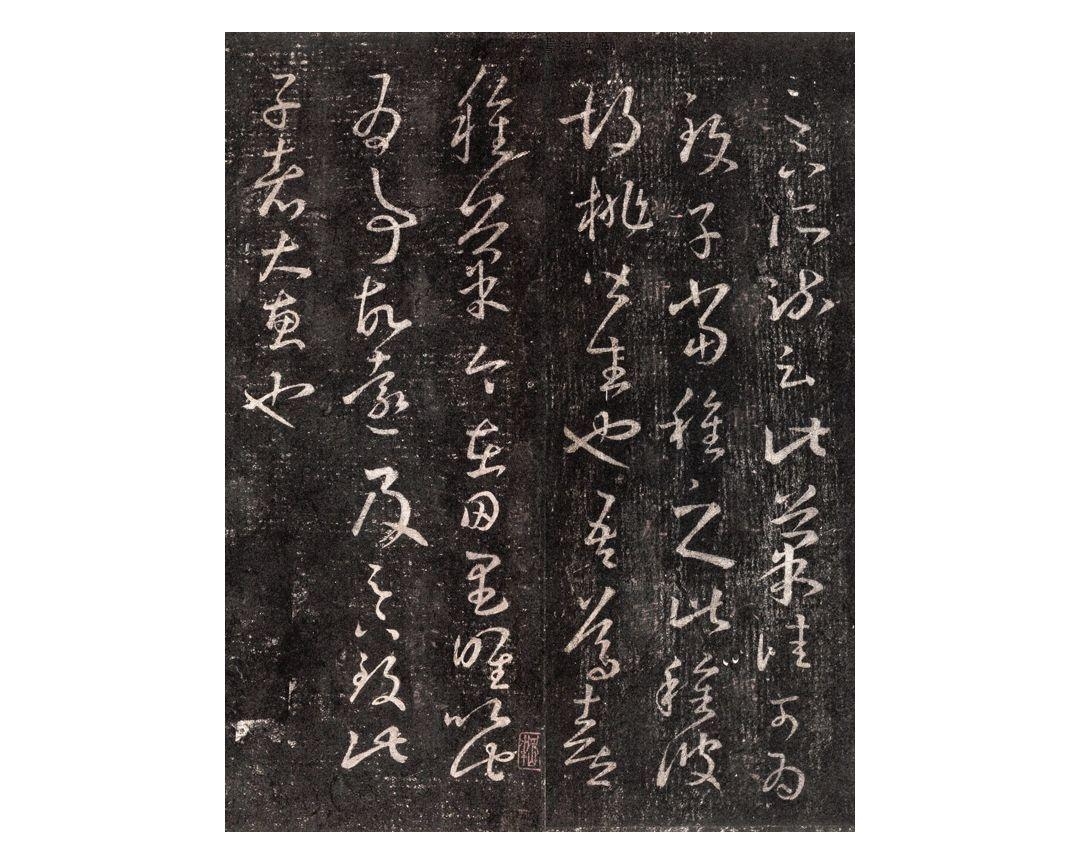 足下所疏云此菓佳可為
致子當種之此種彼
胡桃皆生也吾篤喜
種菓今在田里唯以此
為事故遠及足下致此
子者大惠也